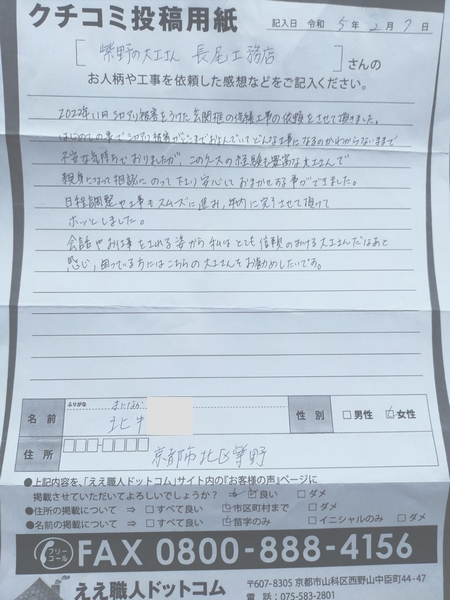 クチコミ投稿用紙
記入日 令和 5年 2月 7日
[ 紫野の大工さん 長尾工務店 ]さんの
お人柄や工事を依頼した感想などをご記入ください。
2022年11月シロアリ被害をうけた玄関框の修繕工事の依頼をさせて頂きました。
はじめての事でシロアリ被害がどこまでおよんでいてどんな工事になるのかわからないまま
不安な気持ちでおりましたが、このケースの経験も豊富な大工さんで
親身になって相談にのって下さり安心しておまかせする事ができました。
日程調整や工事もスムーズに進み、年内に完了させて頂けて
ホッとしました。
会話やお仕事をされる姿から私はとても信頼のおける大工さんだはあと
感じ、困っている方にはこちらの大工さんをお勧めしたいです。
ふりがな
名前 北中
性別 □男性 ☑女性
住所 京都市北区紫野
●上記内容を、「ええ職人ドットコム」サイト内の『お客様の声』ページに
掲載させていただいてよろしいでしょうか？ ⇒ ☑良い □ダメ
●住所の掲載について ⇒ □すべて良い ☑市区町村まで □ダメ
●名前の掲載について ⇒ □すべて良い ☑苗字のみ □イニシャルのみ □ダメ
フリーコール FAX 0800-888-4156
ええ職人ドットコム
〒607-8305 京都市山科区西野山中臣町44-47
電話：075-583-2801